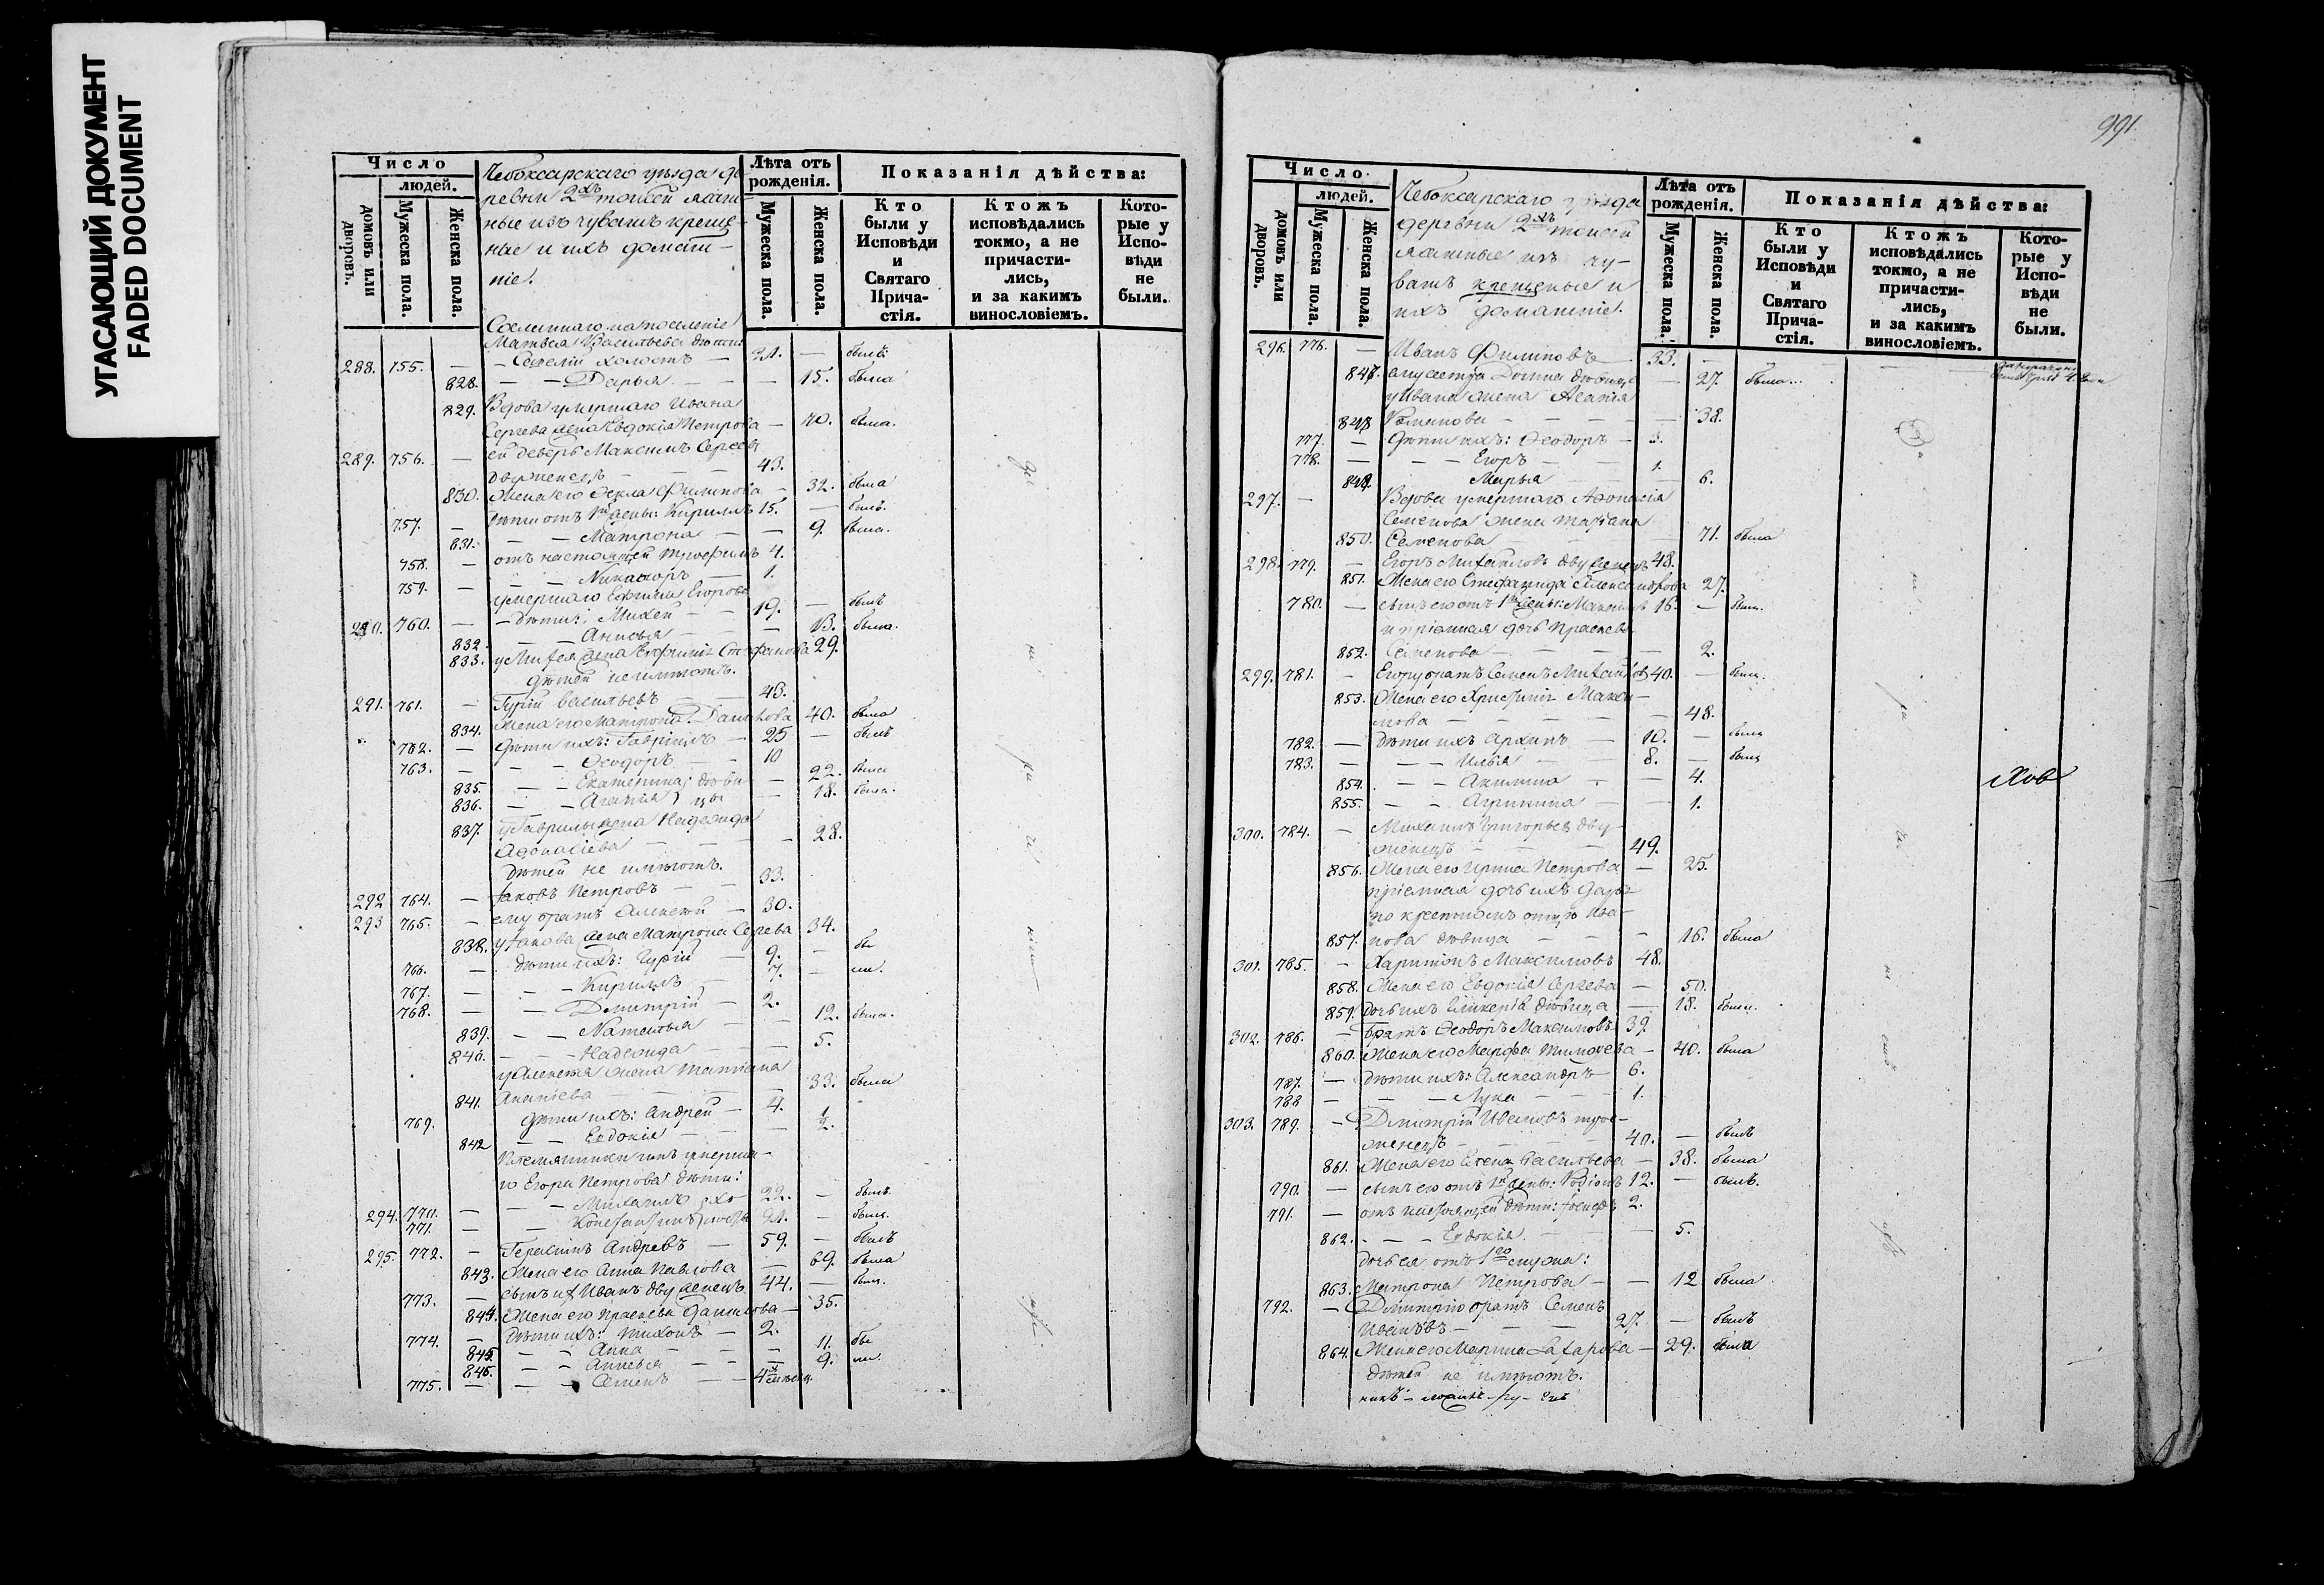 УГАСАЮЩИЙ ДОКУМЕНТ
FADED DOCUMENT
Число
людей.
домовъ или дворовъ.
Мужеска пола.
Женска пола.
Чебоксарскаго уѣзда де-
ревни 2хъ
ные изъ чувашъ креще-
ные и ихъ домашн-
ніе.
Лѣта отъ рожденія.
Мужеска пола.
Женска пола.
Показанія дѣйства:
Кто были у Исповѣди и Святаго Прича-стія.
Ктожъ исповѣдались токмо, а не причасти-лись, и за какимъ винословіемъ.
Кото-рые у Испо-вѣди не были.
Сосланнаго на поселеніе
Матвея Васильева дѣти:
288. 755. — Савелій холостъ — 21. — былъ.
828. — — Дарья — — 15. была
829. Вдова умершаго Ивана
Сергева жена Евдокія Петрова — 70. была.
289. 756. — ей деверь Максимъ Сергеевъ
двуженецъ — 43.
830. Жена его Фекла Филипова — 32. была
757. — Дѣти отъ 1й жены: Кириллъ 15. — былъ.
831. — — Матрона — — 9. была.
758. — отъ настоящей Трофимъ 4.
759. — — Никаноръ — 1.
умершаго Ефима Егорова
290. 760. — дѣти: Михей — 19. — былъ
832. — — Анисья — — 13. была.
833. у Михея жена Евфимія Стефанова 29.
дѣтей не имѣютъ.
291. 761. — Гурій Васильевъ — 43.
834. Жена его Матрона Данилова 40. была
762. — Дѣти ихъ: Гавріилъ — 25 — былъ
763. — — Ѳеодоръ — 10
835. — — Екатерина дѣви- 22. была
836. — — Агафія цы — 18. была.
837. у Гаврилы жена Надежда
Афонасіева — — 28.
дѣтей не имѣютъ.
292 764. — Іаковъ Петровъ — 33.
293 765. — ему братъ Алексей — 30.
838. у Іакова жена Матрона Сергева 34.
766. — дѣти ихъ: Гурій — 9. — бы
767. — — Кириллъ — 7. — ли.
768. — — Дмитрій — 2.
839. — — Наталья — 12. была.
840. — — Надежда — 5.
у Алексея жена Татіана
841. Ананіева — — 33. была
769. дѣти ихъ: Андрей — 4.
842 — — Евдокія — — 1/2.
Племянники ихъ умерша-
го Егора Петрова дѣти:
294. 770. — — Михаилъ хо- 22. — былъ.
771. — — Константинъ лосты 21. — былъ.
295. 772. — Герасимъ Андревъ — 59. — былъ
843. Жена его Анна Павлова — 69. была
773. — сынъ их Иванъ двуженецъ 44. — былъ.
844. Жена его Праскева Данилова — 35.
774. — Дѣти ихъ: Тихонъ — 2.
845. — — Анна — — 11. бы
846. — — Анисья — — 9. ли.
775. — — Семенъ — 4х
991
Число
людей.
домовъ или дворовъ.
Мужеска пола.
Женска пола.
Чебоксарскаго уѣзда
деревни 2хъ
изъ чу-
вашъ крещеные и
ихъ домашніе.
Лѣта отъ рожденія.
Мужеска пола.
Женска пола.
Показанія дѣйства:
Кто были у Исповѣди и Святаго Прича-стія.
Ктожъ исповѣдались токмо, а не причасти-лись, и за какимъ винословіемъ.
Кото-рые у Испо-вѣди не были.
296. 776. — Иванъ Филиповъ — 33. —
847. ему сестра Домна дѣвица — 27. была
у Ивана жена Агафія
848. — — 38.
777. — Дѣти ихъ: Ѳеодоръ — 3.
778. — — Егоръ — 1.
849. Марья — 6.
297. — Вдова умершаго Афонасія
Семенова жена Татіана
850. Семенова — — 71. была
298. 779. — Егоръ Михайловъ двуженецъ 48.
851. Жена его Стефанида Александрова 27.
780. — сынъ его отъ 1й жены: Максимъ 16. — былъ.
и пріемная дочь Праскева
852. Семенова — — 2.
299. 781. — Егору братъ Семенъ Михайловъ 40. — былъ.
853. Жена его Христинія Макси-
мова — — 48.
782. — Дѣти ихъ Архипъ — 10. — былъ
783. — — Илья — 8. — былъ
854. — — Акилина — — 4.
855. — — Агрипина — — 1.
300. 784. — Михаилъ Григорьевъ дву-
женецъ — 49.
856. Жена его Ирина Петрова — 25.
пріемная дочь ихъ Дарья
по крестному отцу Ива-
857. нова дѣвица — — 16. была
301. 785. — Харитонъ Максимовъ 48.
858. Жена его Евдокія Сергева — 50.
859. дочь ихъ Гликерія дѣвица — 18. была.
302. 786. — Братъ Ѳеодоръ Максимовъ 39.
860. Жена его Марфа Тимофева — 40. была
787. — Дѣти ихъ: Александръ 6.
788 — — Лука — 1.
303. 789. — Дмитрій Ивановъ трое-
женецъ — 40. — былъ
861. Жена его Елена Васильева — 38. была
790. — сынъ его отъ 1й жены: Родіонъ 12. — былъ.
791. — отъ настоящей дѣти: Іосифъ 2.
862. — — Евдокія — 5.
дочь ея отъ 1го мужа:
863. Матрона Петрова — — 12 была
792. — Дмитрію братъ Семенъ
Ивановъ — 27. — былъ
864. Жена его Марина Захарова — 29. была
Дѣтей не имѣютъ.